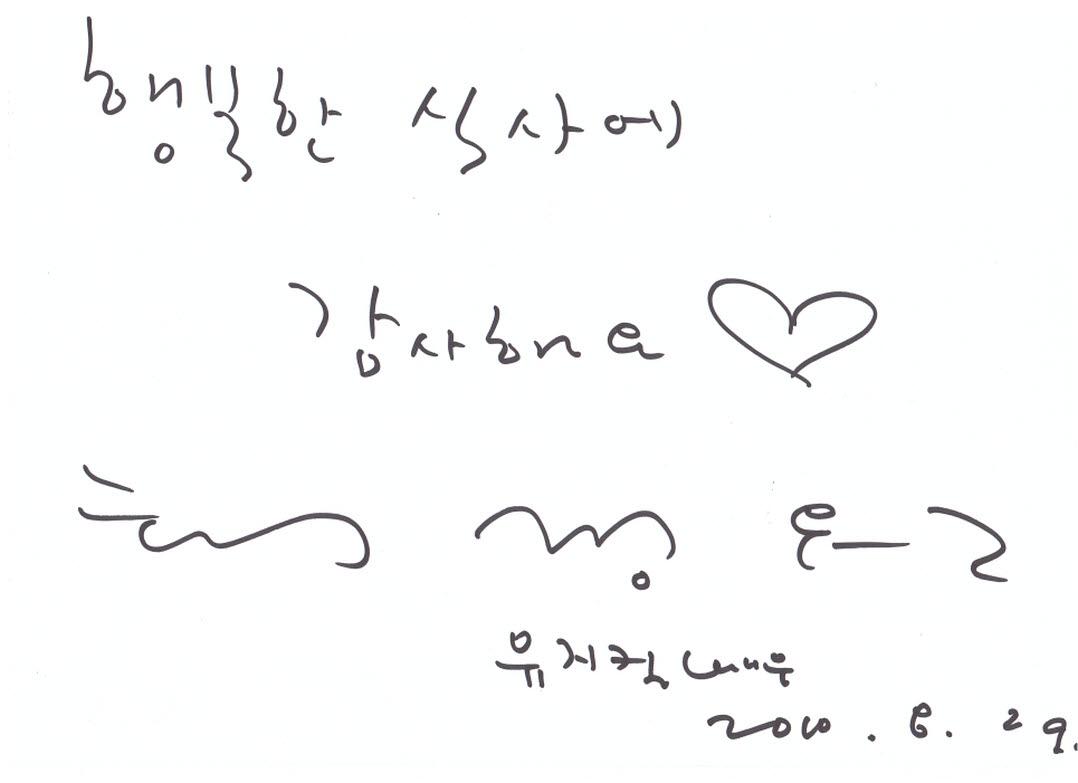 행복한 식사에
감사해요 ♡
뮤지컬 배우
2010 . 6 . 29.